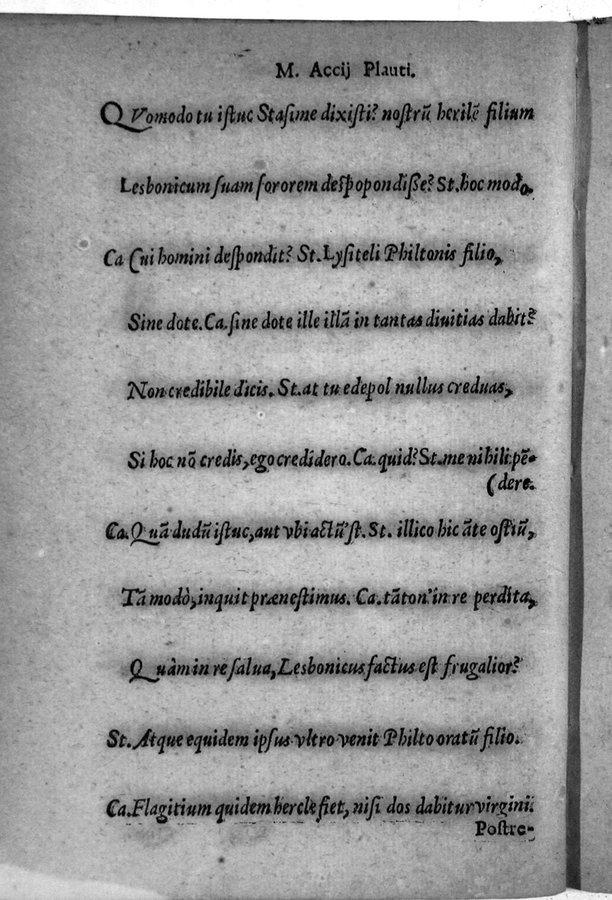 M. Accij Plauti.
QVomodo tu iſtuc Staſime dixiſti? noſtrũ herilẽ filium
Lesbonicum ſuam ſororem deſpopondiſſe? St. hoc modo.
Ca Cui homini deſpondit? St. Lyſiteli Philtonis filio,
Sine dote. Ca. ſine dote ille illã in tantas diuitias dabit?
Non credibile dicis. St. at tu edepol nullus creduas,
Si hoc nõ credis, ego credidero. Ca. quid? St. me nihili pẽ-
(dere.
Ca. Quã dudũ iſtuc, aut vbi actũ'ſt. St. illico hic ãte oſtiũ,
Tã modò, inquit præneſtimus. Ca. tãton' in re perdita,
Quàm in re ſalua, Lesbonicus factus eſt frugalior?
St. Atque equidem ipſus vltro venit Philto oratũ filio.
Ca. Flagitium quidem hercle fiet, niſi dos dabitur virgini.
Poſtre-